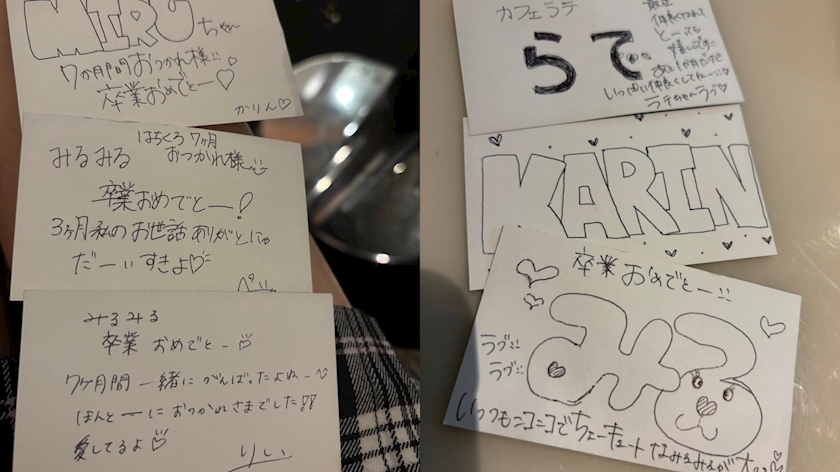 MIRUちゃん
7か月間おつかれ様
卒業おめでとー♡
かりん♡
みるみる
はちくろ 7ヶ月
おつかれ様
卒業おめでとー!
3ヶ月私のお世話ありがとにゃ
だーいすきよ♡
みるみる
卒業 おめでとー
7ヶ月間 一緒にがんばったよねー
ほんとーにおつかれさまでした!!
愛してるよ♡
りい
カフェラテ
らて
とっても
いっぱい仲良くしてねー
KARIN
卒業 おめでとー
みる
ラブ
ラブ
いつもニコニコでちょーキュート なみるみるが大